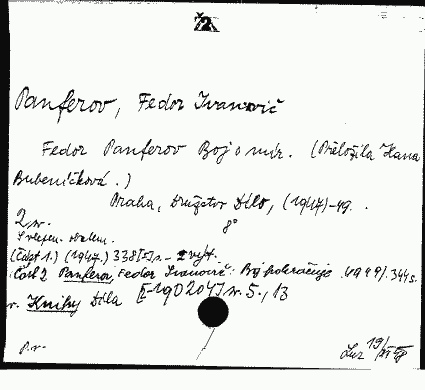 Panferov, Fedor Ivanovič
Fedor Panferov Boj o mír. (Přeložila Hana
Bubeníčková.)
Praha, Družstvo Dílo, (1947)-49.
2 sv. 8°
(Část 1.) (1947.) 338 [5] s. -
Část 2 Panferov, Fedor Ivanovič: Boj pokračuje. 1949. 344 s.
v. Knihy Díla [I-190204] sv. 5., 13